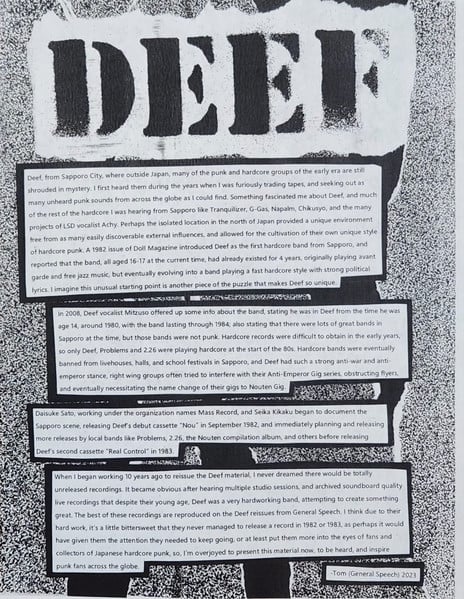 DEEF
Deef, from Sapporo City, where outside Japan, many of the punk and hardcore groups of the early era are still
shrouded in mystery. I first heard them during the years when I was furiously trading tapes, and seeking out as
many unheard punk sounds from across the globe as I could find. Something fascinated me about Deef, and much
of the rest of the hardcore I was hearing from Sapporo like Tranquilizer, G-Gas, Napalm, Chikusyo, and the many
projects of LSD vocalist Achy. Perhaps the isolated location in the north of Japan provided a unique environment
free from as many easily discoverable external influences, and allowed for the cultivation of their own unique style
of hardcore punk. A 1982 issue of Doll Magazine introduced Deef as the first hardcore band from Sapporo, and
reported that the band, all aged 16-17 at the current time, had already existed for 4 years, originally playing avant
garde and free jazz music, but eventually evolving into a band playing a fast hardcore style with strong political
lyrics. I imagine this unusual starting point is another piece of the puzzle that makes Deef so unique.
In 2008, Deef vocalist Mitzuso offered up some info about the band, stating he was in Deef from the time he was
age 14, around 1980, with the band lasting through 1984; also stating that there were lots of great bands in
Sapporo at the time, but those bands were not punk. Hardcore records were difficult to obtain in the early years,
so only Deef, Problems and 2.26 were playing hardcore at the start of the 80s. Hardcore bands were eventually
banned from livehouses, halls, and school festivals in Sapporo, and Deef had such a strong anti-war and anti-
emperor stance, right wing groups often tried to interfere with their Anti-Emperor Gig series, obstructing flyers,
and eventually necessitating the name change of their gigs to Nouten Gig.
Daisuke Sato, working under the organization names Mass Record, and Seika Kikaku began to document the
Sapporo scene, releasing Deef's debut cassette "Nou" in September 1982, and immediately planning and releasing
more releases by local bands like Problems, 2.26, the Nouten compilation album, and others before releasing
Deef's second cassette "Real Control" in 1983.
When I began working 10 years ago to reissue the Deef material, I never dreamed there would be totally
unreleased recordings. It became obvious after hearing multiple studio sessions, and archived soundboard quality
live recordings that despite their young age, Deef was a very hardworking band, attempting to create something
great. The best of these recordings are reproduced on the Deef reissues from General Speech. I think due to their
hard work, it's a little bittersweet that they never managed to release a record in 1982 or 1983, as perhaps it would
have given them the attention they needed to keep going, or at least put them more into the eyes of fans and
collectors of Japanese hardcore punk, so, I'm overjoyed to present this material now, to be heard, and inspire
punk fans across the globe.
-Tom (General Speech) 2023